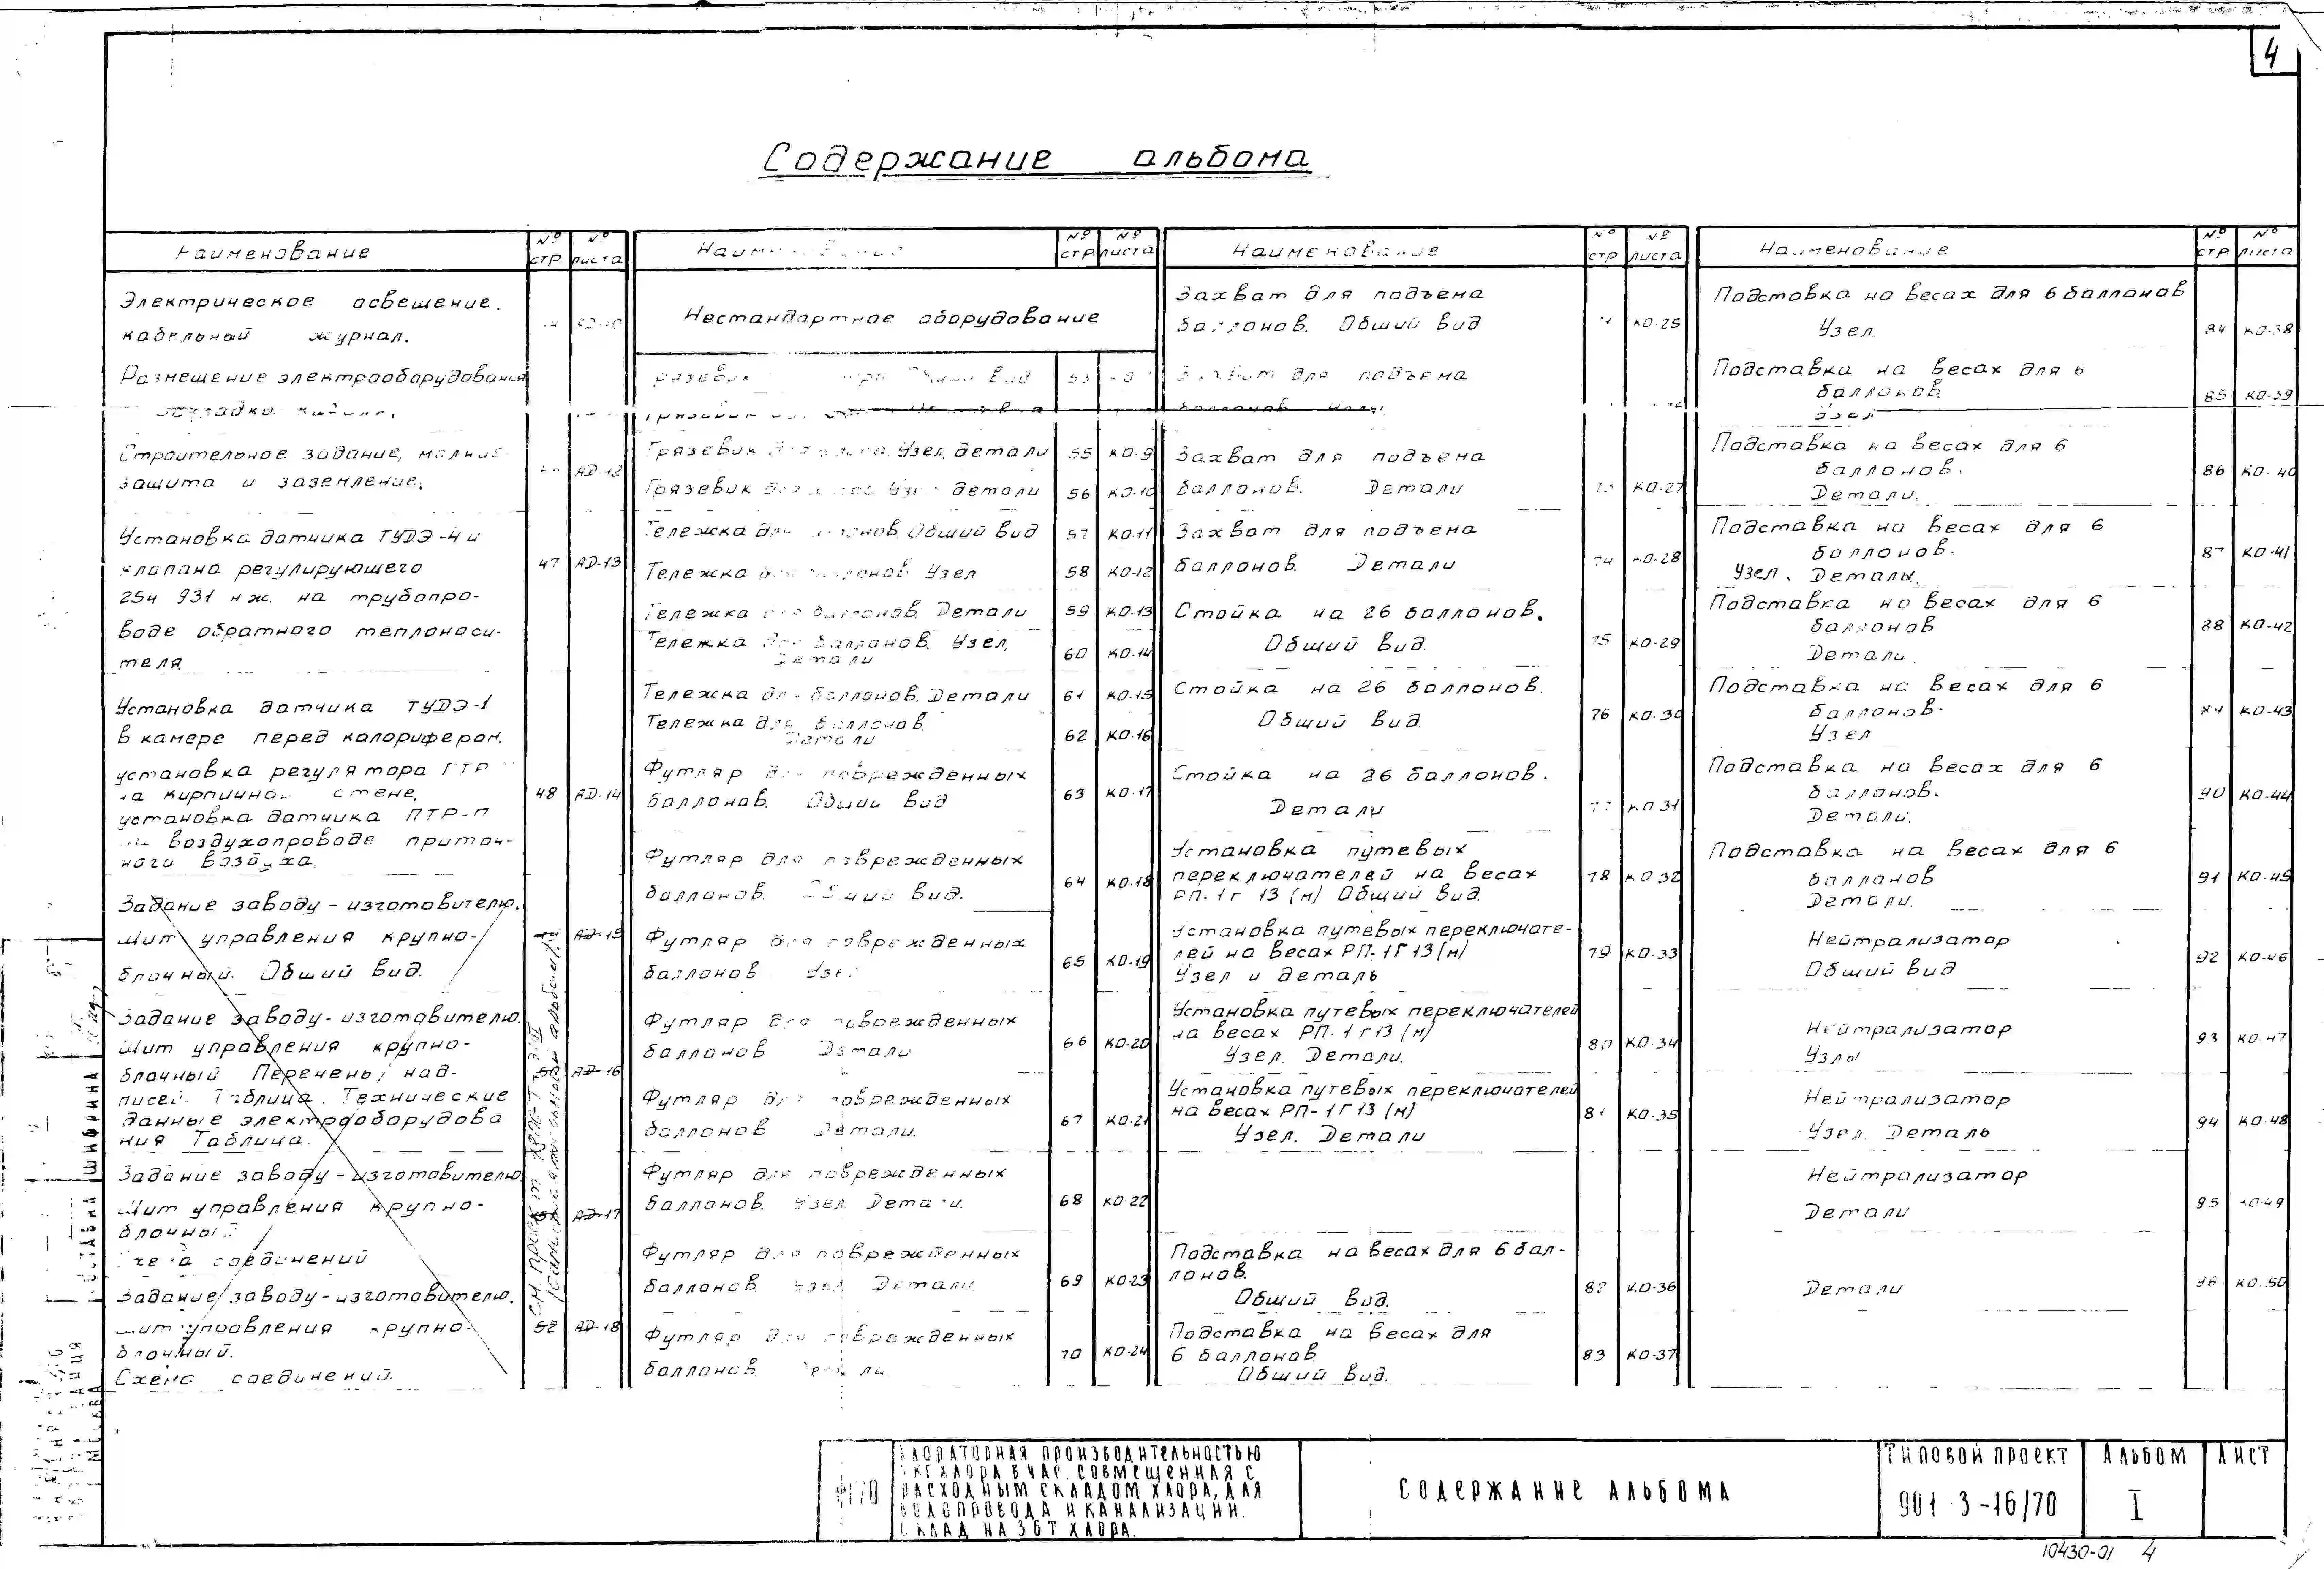 4
Содержание альбома
Наименование
№ стр.
№ листа
Электрическое освещение.
кабельный журнал.
Размещение электрооборудования
Строительное задание, молние-
защита и заземление.
АД-12
Установка датчика ТУДЭ-4 и
клапана регулирующего
25ч 931 нж. на трубопро-
воде обратного теплоноси-
теля
47 АД-13
Установка датчика ТУДЭ-1
в камере перед калорифером.
установка регулятора ПТР
на кирпичной стене.
установка датчика ПТР-П
на воздухопроводе приточ-
ного воздуха.
48 АД-14
Задание заводу-изготовителю.
Щит управления крупно-
блочный. Общий вид.
49 АД-15
Задание заводу-изготовителю.
Щит управления крупно-
блочный Перечень над-
писей. Таблица. Технические
данные электрооборудова
ния Таблица.
50 АД-16
Задание заводу-изготовителю.
Щит управления крупно-
блочный
Схема соединений
51 АД-17
Задание заводу-изготовителю.
щит управления крупно-
блочный.
Схема соединений.
52 АД-18
Наименование
№ стр
№ листа
Нестандартное оборудование
вид 53
Грязевик для хлора. Узел, детали 55 КО-9
Грязевик для хлора Узел детали 56 КО-10
Тележка для баллонов. Общий вид 57 КО-11
Тележка для баллонов Узел 58 КО-12
Тележка для баллонов. Детали 59 КО-13
Тележка для баллонов. Узел,
Детали
60 КО-14
Тележка для баллонов. Детали 61 КО-15
Тележка для баллонов
Детали
62 КО-16
Футляр для поврежденных
баллонов. Общий вид
63 КО-17
Футляр для поврежденных
баллонов. Общий вид.
64 КО-18
Футляр для поврежденных
баллонов Узел
65 КО-19
Футляр для поврежденных
баллонов Детали
66 КО-20
Футляр для поврежденных
баллонов Детали.
67 КО-21
Футляр для поврежденных
баллонов. Узел. Детали.
68 КО-22
Футляр для поврежденных
баллонов. Узел Детали
69 КО-23
Футляр для поврежденных
баллонов. Детали
70 КО-24
Наименование
№ стр
№ листа
Захват для подъема
баллонов. Общий вид
КО-25
Захват для подъема
баллонов. Узлы.
Захват для подъема
баллонов. Детали
КО-27
Захват для подъема
баллонов. Детали
74 КО-28
Стойка на 26 баллонов.
Общий вид.
75 КО-29
Стойка на 26 баллонов.
Общий вид.
76 КО-30
Стойка на 26 баллонов.
Детали
77 КО-31
Установка путевых
переключателей на весах
РП-1Г 13 (м) Общий вид.
78 КО-32
Установка путевых переключате-
лей на весах РП-1Г13(м)
Узел и деталь
79 КО-33
Установка путевых переключателей
на весах РП-1Г13 (м)
Узел. Детали.
80 КО-34
Установка путевых переключателей
на весах РП-1Г13 (м)
Узел. Детали
81 КО-35
Подставка на весах для 6 бал-
лонов.
Общий вид.
82 КО-36
Подставка на весах для
6 баллонов
Общий вид.
83 КО-37
Наименование
№ стр
№ листа
Подставка на весах для 6 баллонов
Узел.
84 КО-38
Подставка на весах для 6
баллонов.
Узел
85 КО-39
Подставка на весах для 6
баллонов.
Детали.
86 КО-40
Подставка на весах для 6
баллонов.
Узел. Деталы.
87 КО-41
Подставка на весах для 6
баллонов
Детали.
88 КО-42
Подставка на весах для 6
баллонов.
Узел
89 КО-43
Подставка на весах для 6
баллонов.
Детали.
90 КО-44
Подставка на весах для 6
баллонов
Детали.
91 КО-45
Нейтрализатор
Общий вид
92 КО-46
Нейтрализатор
Узлы
93 КО-47
Нейтрализатор
Узел. Деталь
94 КО-48
Нейтрализатор
Детали
95 КО-49
Детали
96 КО-50
Хлораторная производительностью
кг хлора в час. совмещенная с
расходным складом хлора, для
водопровода и канализации.
Склад на 36т хлора.
Содержание альбома
Типовой проект
901-3-16/70
Альбом
I
Лист
10430-01 4